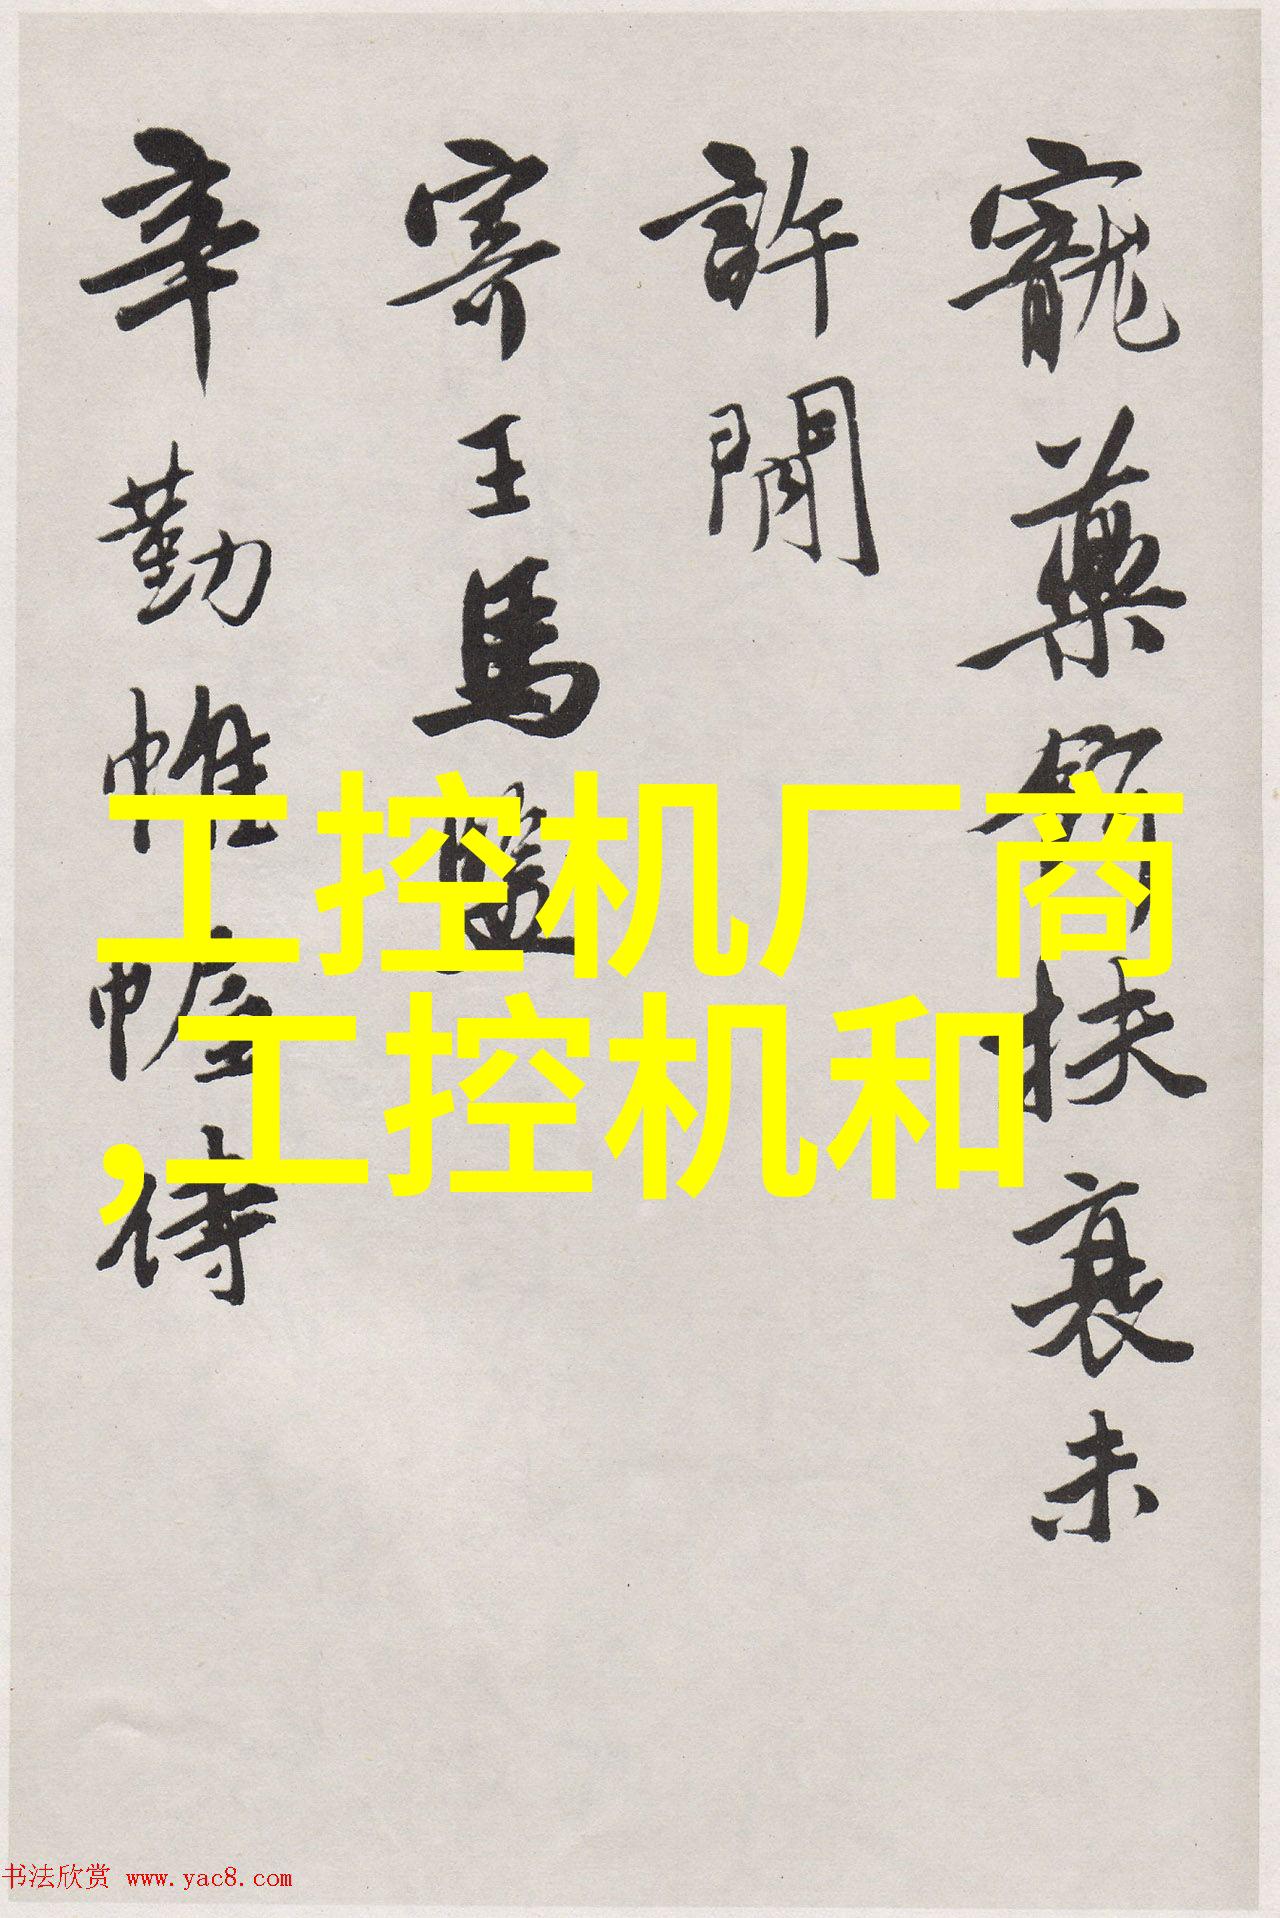 寵藥餌扶衰未
許閒
寄王馬監
辛勤帷幄侍
工控机厂商
,工控机和
书法欣赏 www.yac8.com